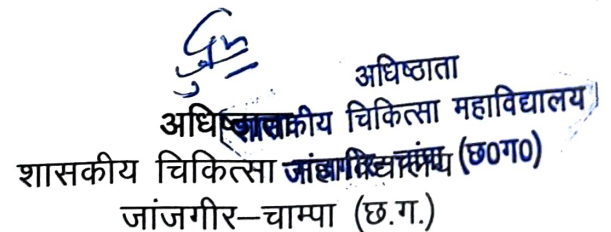 अधिष्ठाता
शासकीय चिकित्सा महाविद्यालय
जांजगीर चांपा (छ0ग0)
अधिष्ठाता
शासकीय चिकित्सा महाविद्यालय
जांजगीर–चाम्पा (छ.ग.)